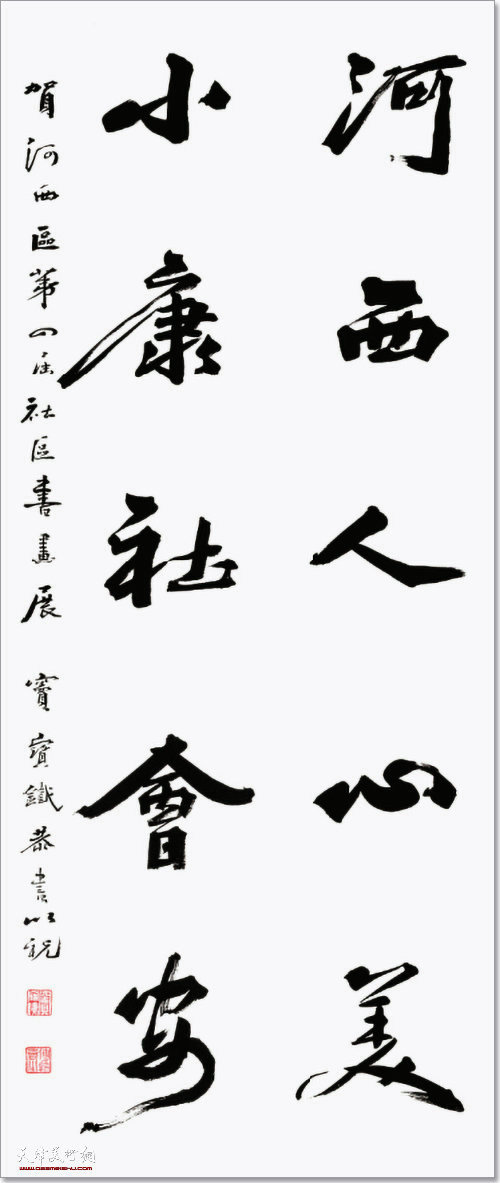 河西人心美
小康社會安
賀河西區第四届社區書畫展 竇寶鐵恭書以祝
天津美术网